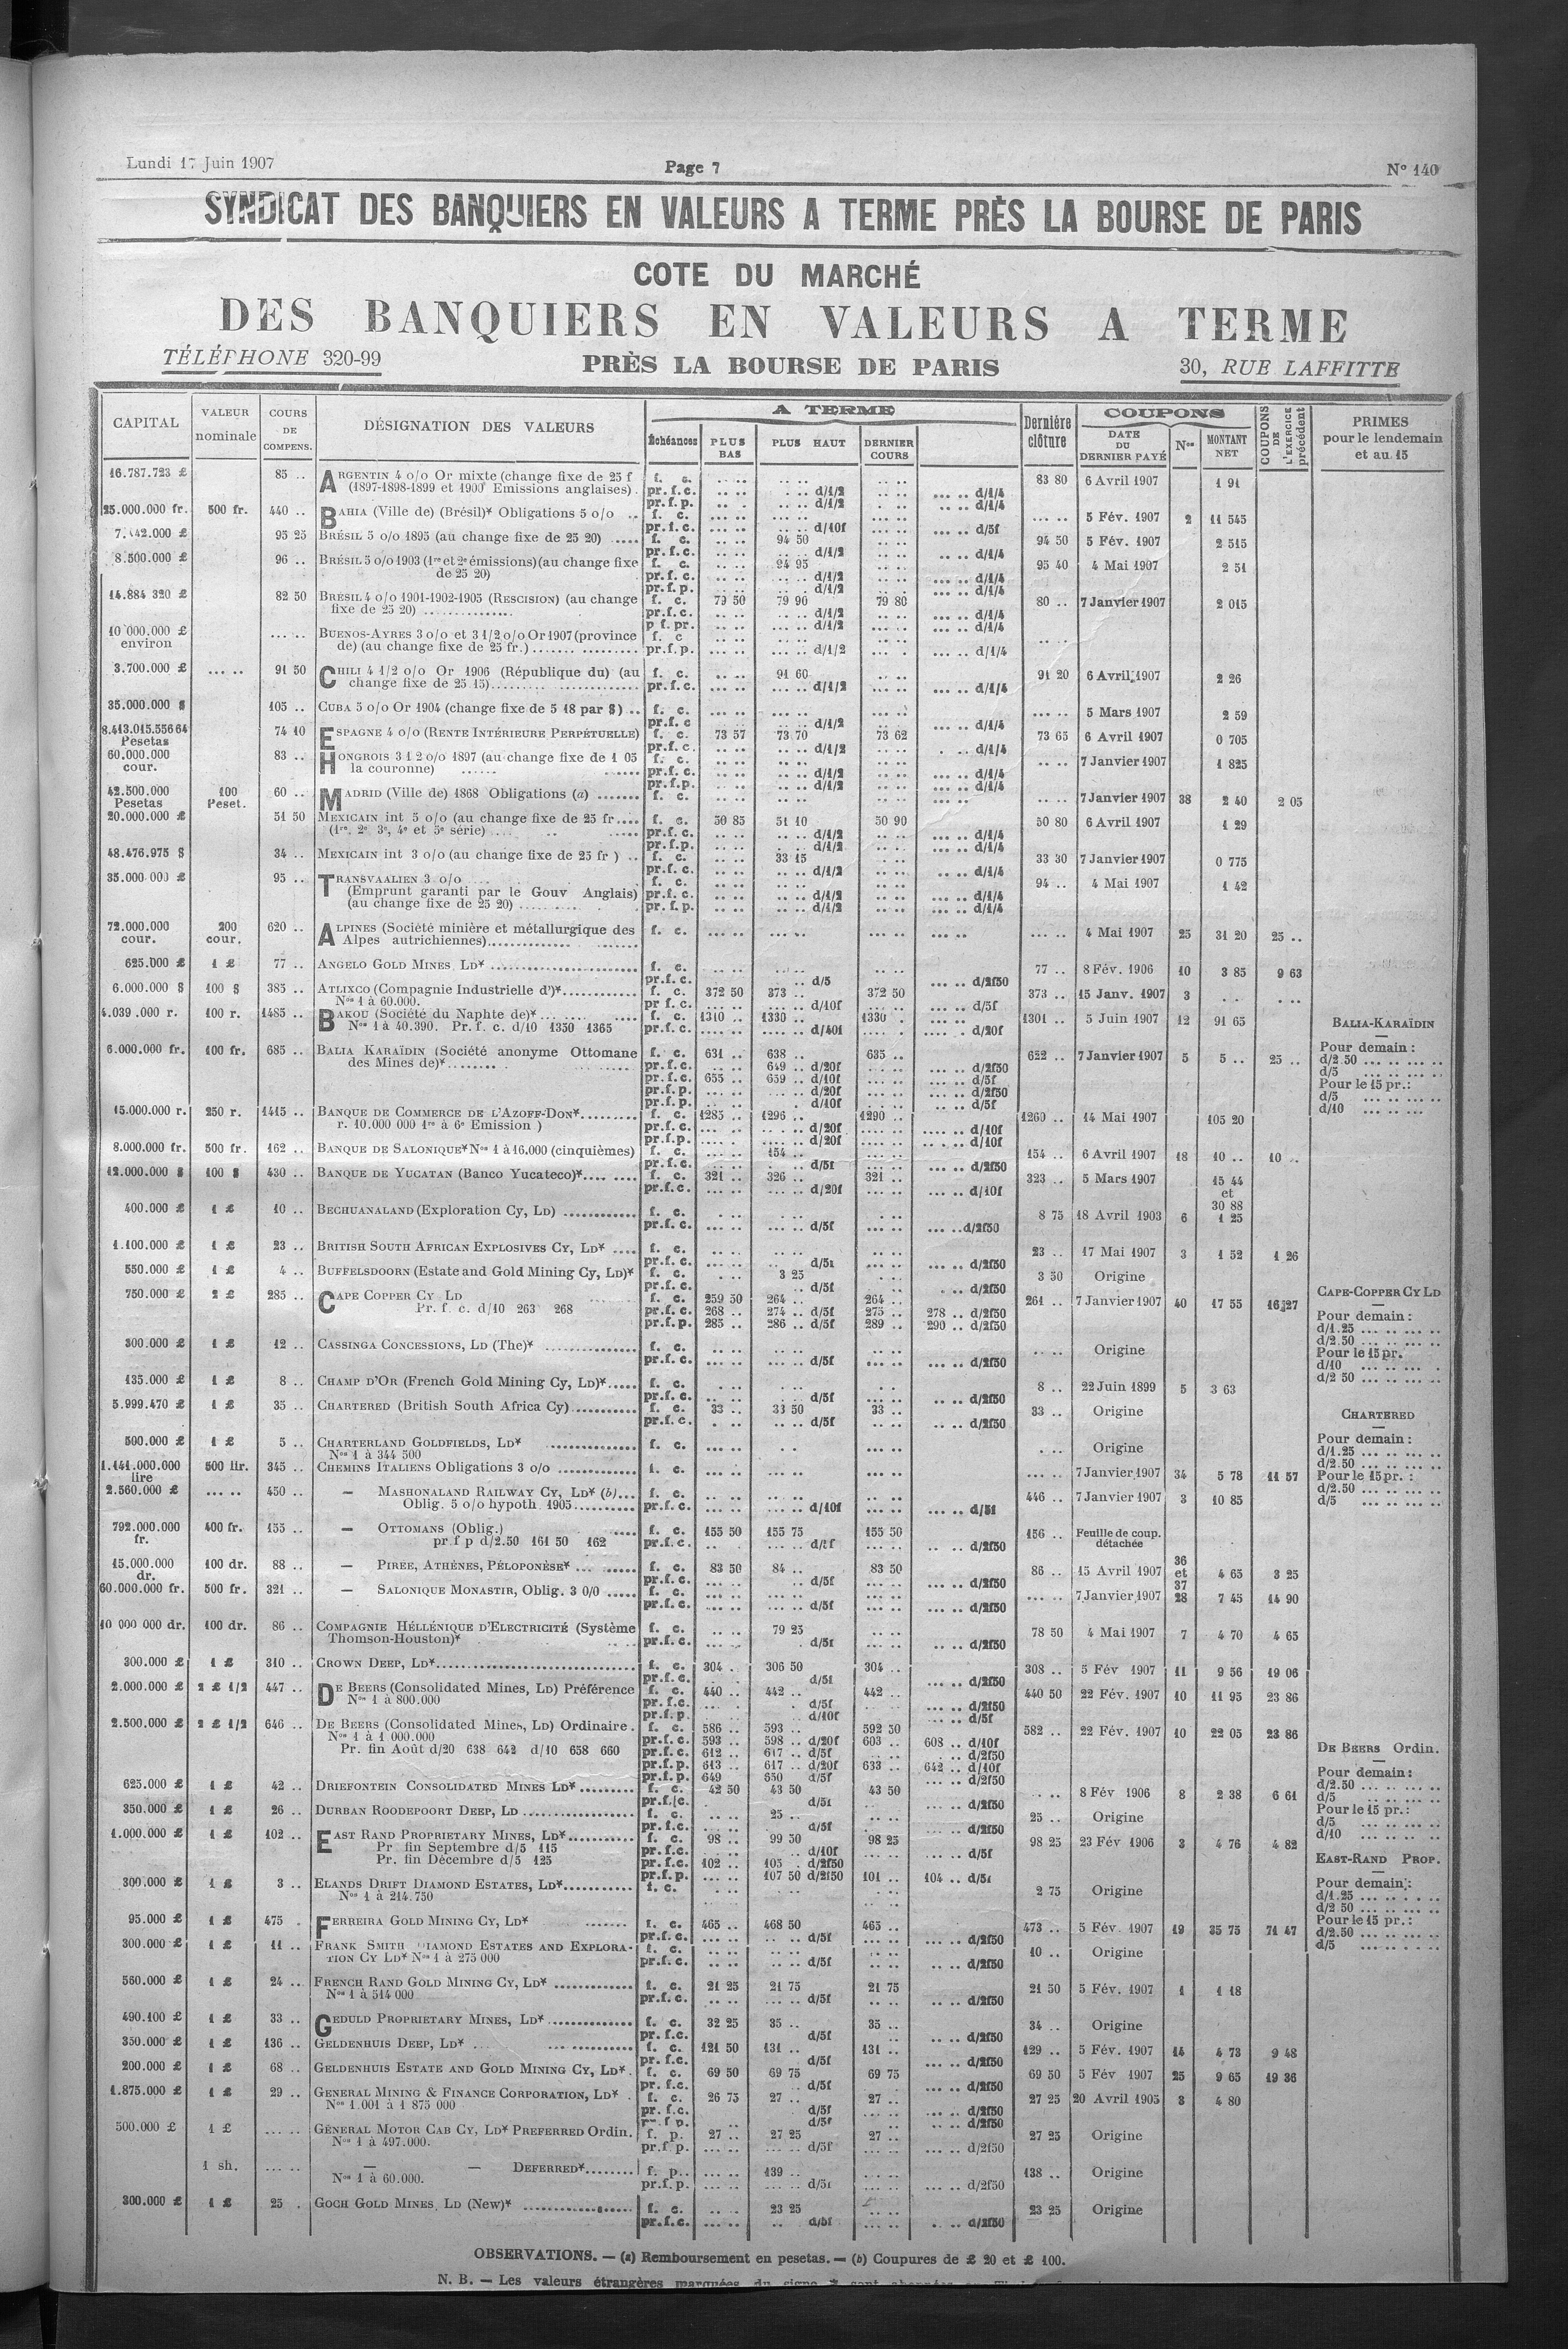 Lundi 17 Juin 1907
Page 7
N° 140
SYNDICAT DES BANQUIERS EN VALEURS A TERME PRÈS LA BOURSE DE PARIS
COTE DU MARCHÉ
DES BANQUIERS EN VALEURS A TERME
TÉLÉPHONE 320-99
PRÈS LA BOURSE DE PARIS
30, RUE LAFFITTE
CAPITAL
VALEUR nominale
COURS DE COMPENS.
DÉSIGNATION DES VALEURS
A TERME
Échéances
PLUS BAS
PLUS HAUT
DERNIER COURS
Dernière clôture
COUPONS
DATE DU DERNIER PAYÉ
Nos
MONTANT NET
COUPONS DE L'EXERCICE précédent
PRIMES pour le lendemain et au 15
16.787.723 £ 85 .. ARGENTIN 4 o/o Or mixte (change fixe de 25 f f. c. 83 80 6 Avril 1907 1 91
(1897-1898-1899 et 1900 Emissions anglaises) . pr.f.c. d/1/2 d/1/4
pr.f.p. d/1/2 d/1/4
25.000.000 fr. 500 fr. 440 .. BAHIA (Ville de) (Brésil)* Obligations 5 o/o .. f. c. 5 Fév. 1907 2 11 545
pr.f.c. d/10f d/5f
95 25 BRÉSIL 5 o/o 1895 (au change fixe de 25 20) ..... f. c. 94 50 94 50 5 Fév. 1907 2 515
pr.f.c. d/1/2 d/1/4
8.500.000 £ 96 .. BRÉSIL 5 o/o 1903 (1re et 2e émissions) (au change fixe f. c. 94 95 95 40 4 Mai 1907 2 51
de 25 20) pr.f.c. d/1/2 d/1/4
pr.f.p. d/1/2 d/1/4
14.884 320 £ 82 50 BRÉSIL 4 o/o 1901-1902-1905 (RESCISION) (au change f. c. 79 50 79 90 79 80 80 .. 7 Janvier 1907 2 015
fixe de 25 20) .............. pr.f.c. d/1/2 d/1/4
p f. pr. d/1/2 d/1/4
10 000.000 £ BUENOS-AYRES 3 o/o et 3 1/2 o/o Or 1907 (province f. c
environ de) (au change fixe de 25 fr.) ....... pr.f.p. d/1/2 d/1/4
3.700.000 £ 91 50 CHILI 4 1/2 o/o Or 1906 (République du) (au f. c. 91 60 91 20 6 Avril 1907 2 26
change fixe de 25 15) pr.f.c. d/1/2 d/1/4
35.000.000 $ 105 .. CUBA 5 o/o Or 1904 (change fixe de 5 18 par $) .. f. c. 5 Mars 1907 2 59
pr.f.c d/1/2 d/1/4
8.413.015.556 64 74 10 ESPAGNE 4 o/o (RENTE INTÉRIEURE PERPÉTUELLE) f. c. 73 57 73 70 73 62 73 65 6 Avril 1907 0 705
Pesetas pr.f.c. d/1/2 d/1/4
60.000.000 83 .. HONGROIS 3 1 2 o/o 1897 (au change fixe de 1 05 f. c. 7 Janvier 1907 1 825
cour. la couronne) pr.f.c. d/1/2 d/1/4
pr.f.p. d/1/2 d/1/4
42.500.000 100 60 .. MADRID (Ville de) 1868 Obligations (a) ....... f. c. 7 Janvier 1907 38 2 40 2 05
Pesetas Peset.
20.000.000 £ 51 50 MEXICAIN int 5 o/o (au change fixe de 25 fr .... f. c. 50 85 51 10 50 90 50 80 6 Avril 1907 1 29
(1re, 2e 3e, 4e et 5e série) pr.f.c. d/1/2 d/1/4
pr.f.p. d/1/2 d/1/4
48.476.975 $ 34 .. MEXICAIN int 3 o/o (au change fixe de 25 fr ) .. f. c. 33 15 33 30 7 Janvier 1907 0 775
pr.f.c. d/1/2 d/1/4
35.000.000 £ 95 .. TRANSVAALIEN 3 o/o f. c. 94 .. 4 Mai 1907 1 42
(Emprunt garanti par le Gouv Anglais) pr.f.c. d/1/2 d/1/4
(au change fixe de 25 20) pr.f.p. d/1/2 d/1/4
72.000.000 200 620 .. ALPINES (Société minière et métallurgique des f. c. 4 Mai 1907 25 31 20 25 ..
cour. cour. Alpes autrichiennes)
625.000 £ 1 £ 77 .. ANGELO GOLD MINES LD* f. c. 77 .. 8 Fév. 1906 10 3 85 9 63
pr.f.c. d/5 d/2f50
6.000.000 $ 100 $ 385 .. ATLIXCO (Compagnie Industrielle d')* f. c. 372 50 373 .. 372 50 373 .. 15 Janv. 1907 3
Nos 1 à 60.000. pr f.c. d/10f d/5f
4.039.000 r. 100 r. 1485 .. BAKOU (Société du Naphte de)* f. c. 1310 .. 1330 .. 1330 .. 1301 .. 5 Juin 1907 12 91 65
Nos 1 à 40.390. Pr. f. c. d/10 1350 1365 pr.f.c. d/40f d/20f
6.000.000 fr. 100 fr. 685 .. BALIA KARAÏDIN (Société anonyme Ottomane f. c. 631 .. 638 .. 635 .. 622 .. 7 Janvier 1907 5 5 .. 25 ..
des Mines de)* pr.f.c. 649 .. d/20f d/2f50
pr.f.c. 655 .. 659 .. d/10f d/5f
pr.f.p. d/20f d/2f50
pr.f.p. d/10f d/5f
15.000.000 r. 250 r. 1415 .. BANQUE DE COMMERCE DE L'AZOFF-DON* f. c. 1285 .. 1296 .. 1290 .. 1260 .. 14 Mai 1907 105 20
r. 10.000 000 1re à 6e Emission ) pr.f.c. d/20f d/10f
pr.f.p. d/20f d/10f
8.000.000 fr. 500 fr. 162 .. BANQUE DE SALONIQUE* Nos 1 à 16.000 (cinquièmes) f. c. 154 .. 154 .. 6 Avril 1907 18 10 .. 10 ..
pr.f.c. d/5f d/2f50
12.000.000 $ 100 $ 430 .. BANQUE DE YUCATAN (Banco Yucateco)* f. c. 321 .. 326 .. 321 .. 323 .. 5 Mars 1907 15 44
pr.f.c. d/20f d/10f et
30 88
400.000 £ 1 £ 10 .. BECHUANALAND (Exploration Cy, LD) f. c. 8 75 18 Avril 1903 6 1 25
pr.f.c. d/5f d/2f50
1.100.000 £ 1 £ 23 .. BRITISH SOUTH AFRICAN EXPLOSIVES CY, LD* f. c. 23 .. 17 Mai 1907 3 1 52 1 26
pr.f.c. d/5f d/2f50
550.000 £ 1 £ 4 .. BUFFELSDOORN (Estate and Gold Mining Cy, LD)* f. c. 3 25 3 50 Origine
pr.f.c. d/5f d/2f50
750.000 £ 2 £ 285 .. CAPE COPPER CY LD f. c. 259 50 264 .. 264 .. 261 .. 7 Janvier 1907 40 17 55 16 27
Pr. f. c. d/10 263 268 pr.f.c. 268 .. 274 .. d/5f 275 .. 278 .. d/2f50
pr.f.p. 285 .. 286 .. d/5f 289 .. 290 .. d/2f50
300.000 £ 1 £ 12 .. CASSINGA CONCESSIONS, LD (The)* f. c. Origine
pr.f.c. d/5f d/2f50
135.000 £ 1 £ 8 .. CHAMP D'OR (French Gold Mining Cy, LD)* f. c. 8 .. 22 Juin 1899 5 3 63
pr.f.c. d/5f d/2f50
5.999.470 £ 1 £ 35 .. CHARTERED (British South Africa Cy) f. c. 33 .. 33 50 33 .. 33 .. Origine
pr.f.c. d/5f d/2f50
500.000 £ 1 £ 5 .. CHARTERLAND GOLDFIELDS, LD* f. c. Origine
Nos 1 à 344 500
1.141.000.000 500 lir. 345 .. CHEMINS ITALIENS Obligations 3 o/o f. c. 7 Janvier 1907 34 5 78 11 57
lire
2.560.000 £ 450 .. — MASHONALAND RAILWAY CY, LD* (b) f. c. 446 .. 7 Janvier 1907 3 10 85
Oblig. 5 o/o hypoth. 1905 pr.f.c. d/10f d/5f
792.000.000 400 fr. 155 .. — OTTOMANS (Oblig.) f. c. 155 50 155 75 155 50 156 .. Feuille de coup.
fr. pr.f p d/2.50 161 50 162 pr.f.c. d/2f50 détachée
15.000.000 100 dr. 88 .. — PIREE, ATHÈNES, PÉLOPONÈSE* f. c. 83 50 84 .. 83 50 86 .. 15 Avril 1907 36 et 37 4 65 3 25
dr. pr.f.c. d/5f d/2f50
60.000.000 fr. 500 fr. 321 .. — SALONIQUE MONASTIR, Oblig. 3 0/0 f. c. 7 Janvier 1907 28 7 45 14 90
pr.f.c. d/5f d/2f50
10 000 000 dr. 100 dr. 86 .. COMPAGNIE HÉLLÉNIQUE D'ELECTRICITÉ (Système f. c. 79 25 78 50 4 Mai 1907 7 4 70 4 65
Thomson-Houston)* pr.f.c. d/5f d/2f50
300.000 £ 1 £ 310 .. CROWN DEEP, LD* f. c. 304 .. 306 50 304 .. 308 .. 5 Fév 1907 11 9 56 19 06
pr.f.c. d/5f d/2f50
2.000.000 £ 2 £ 1/2 447 .. DE BEERS (Consolidated Mines, LD) Préférence f. c. 440 .. 442 .. 442 .. 440 50 22 Fév. 1907 10 11 95 23 86
Nos 1 à 800.000 pr.f.c. d/5f d/2f50
pr.f.p. d/10f d/5f
2.500.000 £ 2 £ 1/2 646 .. DE BEERS (Consolidated Mines, LD) Ordinaire . f. c. 586 .. 593 .. 592 50 582 .. 22 Fév. 1907 10 22 05 23 86
Nos 1 à 1 000.000 pr.f.c. 593 .. 598 .. d/20f 603 .. 608 .. d/10f
Pr. fin Août d/20 638 642 d/10 658 660 pr.f.c. 612 .. 617 .. d/5f d/2f50
pr.f.p. 613 .. 617 .. d/20f 633 .. 642 .. d/10f
pr.f.p. 649 650 d/5f d/2f50
625.000 £ 1 £ 42 .. DRIEFONTEIN CONSOLIDATED MINES LD* f. c. 42 50 43 50 43 50 8 Fév 1906 8 2 38 6 61
pr.f.c. d/5f d/2f50
350.000 £ 1 £ 26 .. DURBAN ROODEPOORT DEEP, LD f. c. 25 .. 25 .. Origine
pr.f.c. d/5f d/2f50
1.000.000 £ 1 £ 102 .. EAST RAND PROPRIETARY MINES, LD* f. c. 98 .. 99 50 98 25 98 25 23 Fév 1906 3 4 76 4 82
Pr fin Septembre d/5 115 pr.f.c. d/10f d/5f
Pr. fin Décembre d/5 125 pr.f.c. 102 .. 105 .. d/2f50
pr.f.p. 107 50 d/2f50 101 .. 104 .. d/5f
300.000 £ 1 £ 3 .. ELANDS DRIFT DIAMOND ESTATES, LD* f. c. 2 75 Origine
Nos 1 à 214.750
95.000 £ 1 £ 475 . FERREIRA GOLD MINING CY, LD* f. c. 465 .. 468 50 465 .. 473 .. 5 Fév. 1907 19 35 75 71 47
pr.f.c. d/5f d/2f50
300.000 £ 1 £ 11 .. FRANK SMITH DIAMOND ESTATES AND EXPLORA- f. c. 10 .. Origine
TION CY LD* Nos 1 à 275 000 pr.f.c. d/5f d/2f50
560.000 £ 1 £ 24 .. FRENCH RAND GOLD MINING CY, LD* f. c. 21 25 21 75 21 75 21 50 5 Fév. 1907 1 1 18
Nos 1 à 514 000 pr.f.c. d/5f d/2f50
490.100 £ 1 £ 33 .. GEDULD PROPRIETARY MINES, LD* f. c. 32 25 35 .. 35 .. 34 .. Origine
pr.f.c. d/5f d/2f50
350.000 £ 1 £ 136 .. GELDENHUIS DEEP, LD* f. c. 121 50 131 .. 131 .. 129 .. 5 Fév. 1907 14 4 73 9 48
pr.f.c. d/5f d/2f50
200.000 £ 1 £ 68 .. GELDENHUIS ESTATE AND GOLD MINING CY, LD* . f. c. 69 50 69 75 69 75 69 50 5 Fév 1907 25 9 65 19 36
pr.f.c. d/5f d/2f50
1.875.000 £ 1 £ 29 .. GENERAL MINING & FINANCE CORPORATION, LD* . f. c. 26 75 27 .. 27 .. 27 25 20 Avril 1905 3 4 80
Nos 1.001 à 1 875 000 pr.f.c. d/5f d/2f50
d/5f d/2f50
500.000 £ 1 £ GÉNÉRAL MOTOR CAB CY, LD* PREFERRED Ordin. f. p. 27 .. 27 25 27 .. 27 25 Origine
Nos 1 à 497.000. pr.f p. d/5f d/2f50
1 sh. — — DEFERRED* f. p. 139 .. 138 .. Origine
Nos 1 à 60.000. pr.f.p. d/5f d/2f50
300.000 £ 1 £ 25 . GOCH GOLD MINES, LD (New)* f. c. 23 25 23 25 Origine
pr.f.c. d/5f d/2f50
BALIA-KARAÏDIN
Pour demain :
d/2.50
d/5
Pour le 15 pr. :
d/5
d/10
CAPE-COPPER CY LD
Pour demain :
d/1.25
d/2.50
Pour le 15 pr.
d/10
d/2 50
CHARTERED
Pour demain :
d/1.25
d/2.50
Pour le 15 pr. :
d/2.50
d/5
DE BEERS Ordin.
Pour demain :
d/2.50
d/5
Pour le 15 pr. :
d/5
d/10
EAST-RAND PROP.
Pour demain :
d/1.25
d/2 50
Pour le 15 pr. :
d/2.50
d/5
OBSERVATIONS. — (a) Remboursement en pesetas. — (b) Coupures de £ 20 et £ 100.
N. B. — Les valeurs étrangères marquées du signe * sont